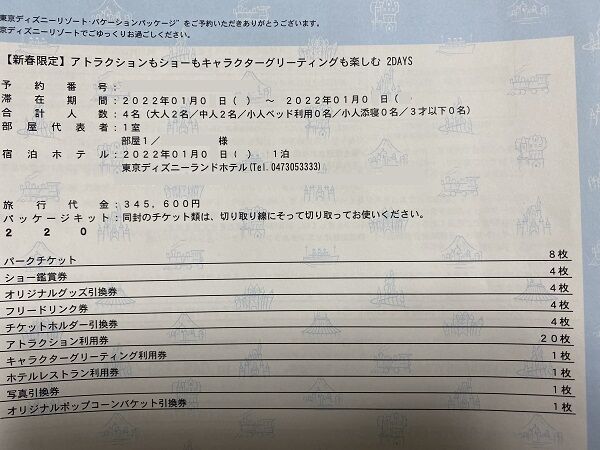 東京ディズニーリゾート・バケーションパッケージ"をご予約いただきありがとうございます。
京ディズニーリゾートでごゆっくりお過ごしください。
【新春限定】アトラクションもショーもキャラクターグリーティングも楽しむ 2DAYS
予約番号：
滞在期間：２０２２年０１月０ 日（ ）～ ２０２２年０１月０ 日（
合計人数：４名（大人２名／中人２名／小人ベッド利用０名／小人添寝０名／３才以下０名）
部屋代表者：１室
部屋１／ 様
宿泊ホテル：２０２２年０１月０ 日（ ） １泊
東京ディズニーランドホテル(Tel. 0473053333)
旅行代金：３４５，６００円
パッケージキット：同封のチケット類は、切り取り線にそって切り取ってお使いください。
２２０
パークチケット ８枚
ショー鑑賞券 ４枚
オリジナルグッズ引換券 ４枚
フリードリンク券 ４枚
チケットホルダー引換券 ４枚
アトラクション利用券 ２０枚
キャラクターグリーティング利用券 １枚
ホテルレストラン利用券 １枚
写真引換券 １枚
オリジナルポップコーンバケット引換券 １枚